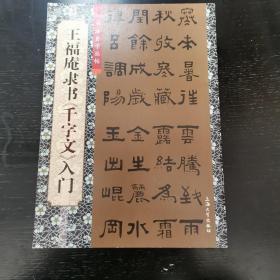 王福庵隶书《千字文》入门
寒來暑往雲騰致雨
秋收冬藏露結為霜
閏餘成歲金生麗水
律呂調陽玉出崐岡